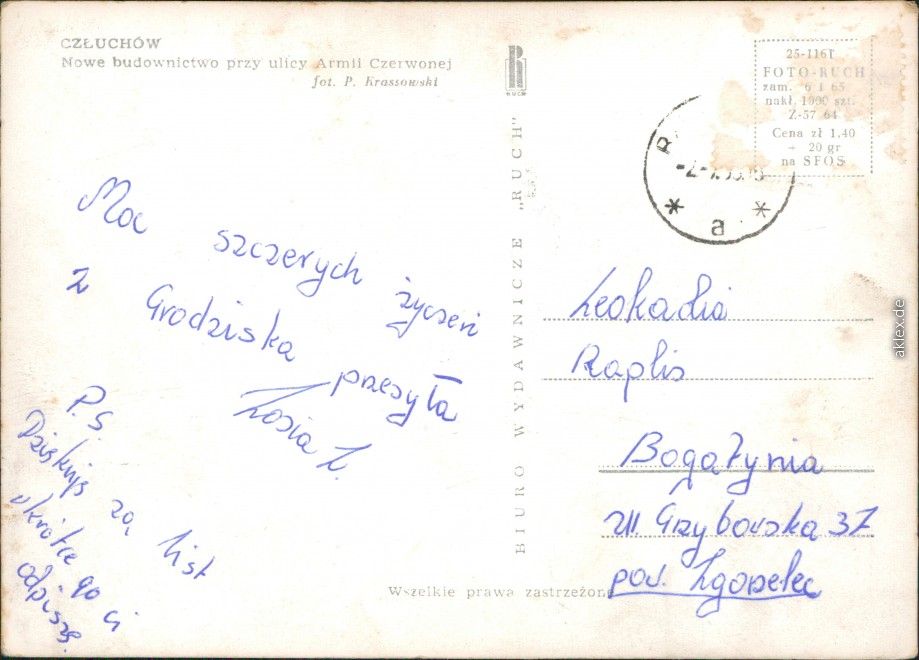 CZŁUCHÓW
Nowe budownictwo przy ulicy Armii Czerwonej
fot. P. Krassowski
RUCH
25-116T
FOTO-RUCH
zam. 6 I 65
nakł. 1000 szt.
Z-57 64
Cena zł 1,40
+ 20 gr
na SFOS
R
a
BIURO WYDAWNICZE „RUCH”
Moc szczerych życzeń
z Grodziska przesyła
Zosia Z.
P.S.
Dziękuję za list
wkrótce go ci
odpiszę.
Leokadia
Raplis
Bogatynia
ul. Grybowska 37
pow. Zgorzelec
Wszelkie prawa zastrzeżone
aklex.de